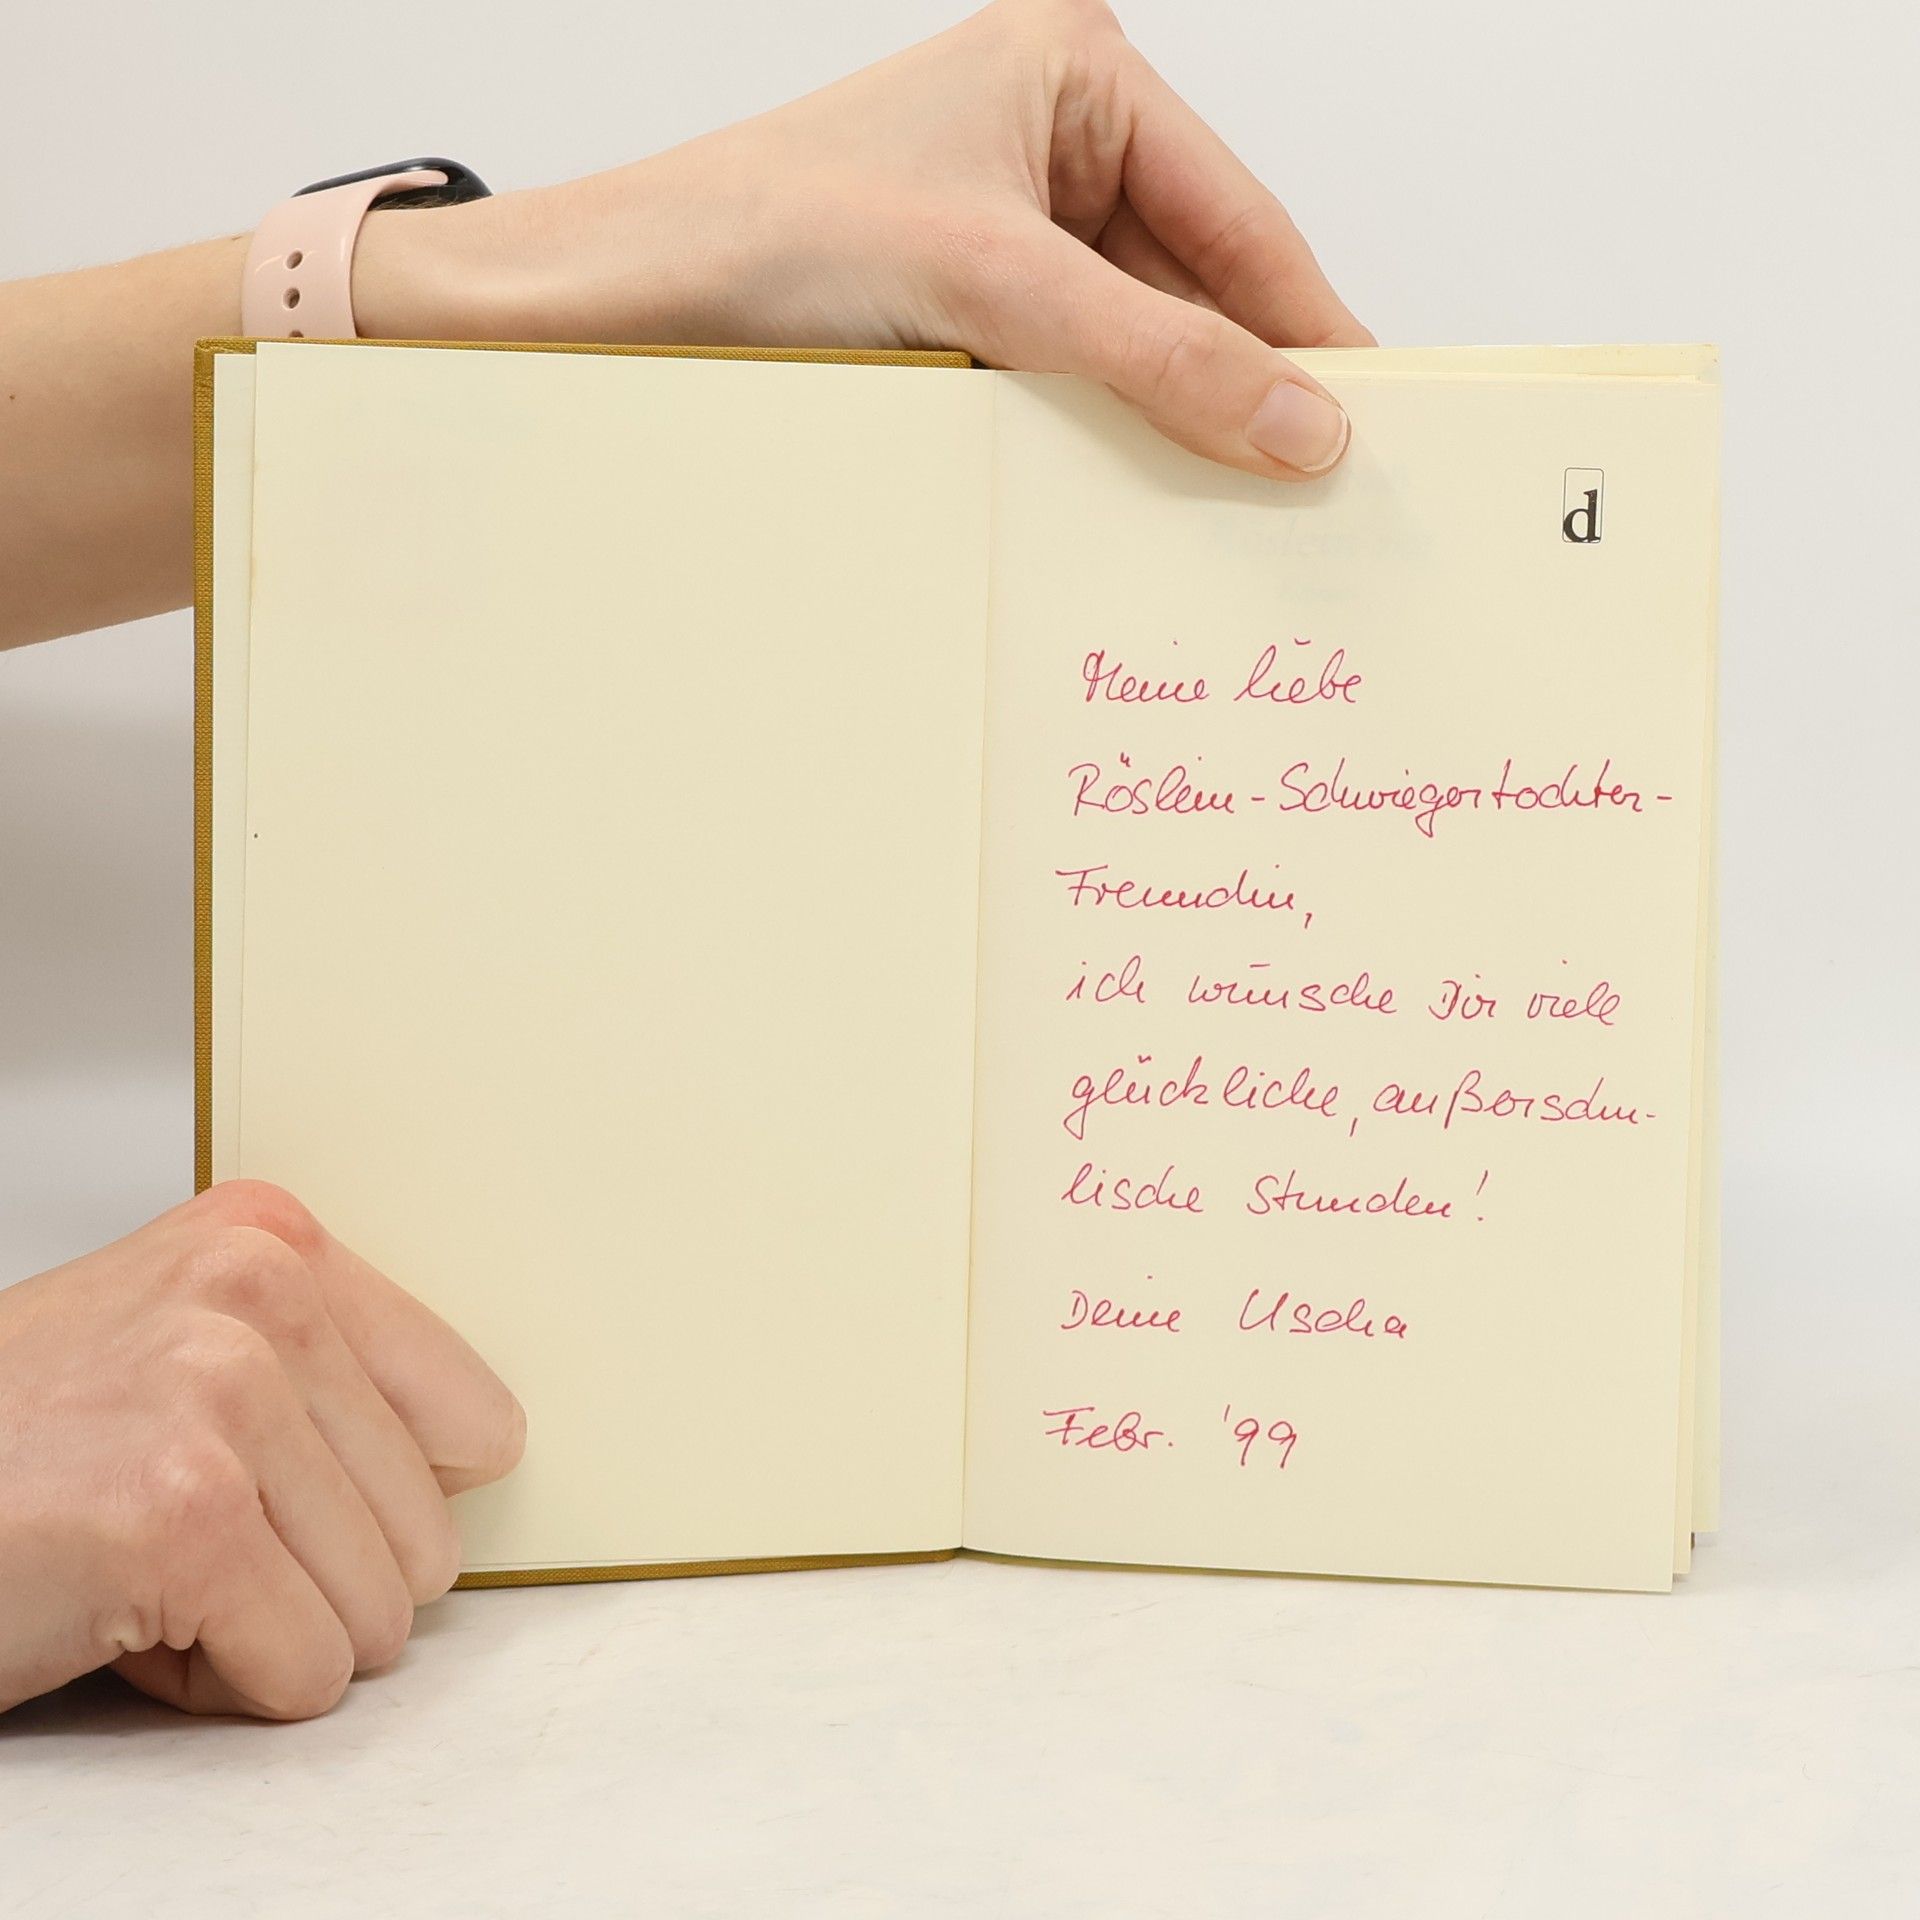 d
Meine liebe
Röslein-Schwiegertochter-
Freundin,
ich wünsche Dir viele
glückliche, außerschu-
lische Stunden!
Deine Uscha
Febr. '99